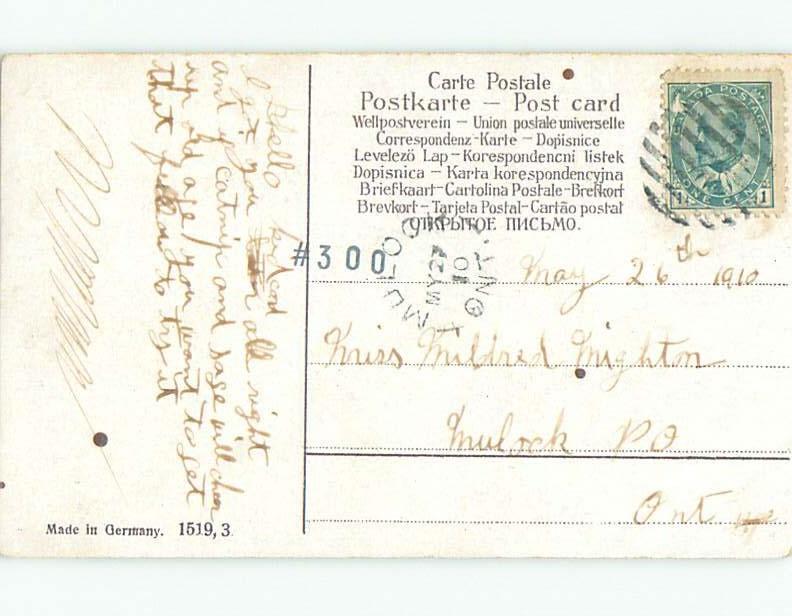 Carte Postale
Postkarte — Post card
Weltpostverein — Union postale universelle
Correspondenz-Karte — Dopisnice
Levelező Lap — Korespondencni listek
Dopisnica — Karta korespondencyjna
Briefkaart — Cartolina Postale — Brefkort
Brevkort — Tarjeta Postal — Cartão postal
ОТКРЫТОЕ ПИСЬМО.
CANADA POSTAGE
1 ONE CENT 1
MULOCK ONT
MY 27
10
#300
May 26th 1910
Miss Mildred Mighton
Mulock PO
Ont
Hello kid
I got you all right
and if catnip and sage will cheer
old age you want to get
that to try it
Made in Germany. 1519,3.